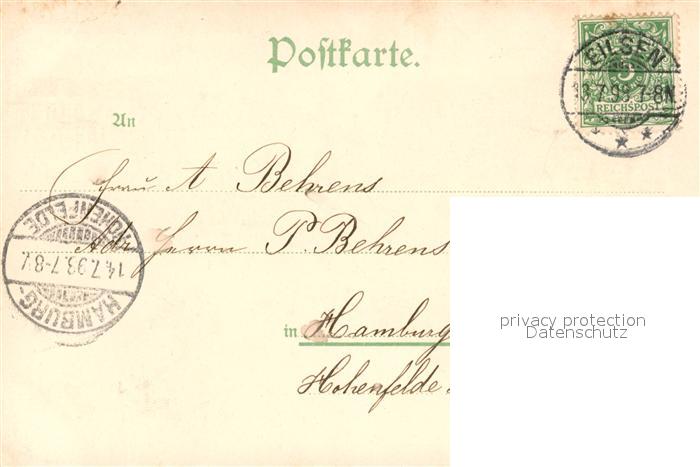 Postkarte.
EILSEN
13.7.93.7-8N
5
REICHSPOST
An
Frau A Behrens
Adr Herrn P. Behrens
HOHENFELDE
14.7.93.7-8V
HAMBURG-
in Hamburg
Hohenfelde
privacy protection
Datenschutz